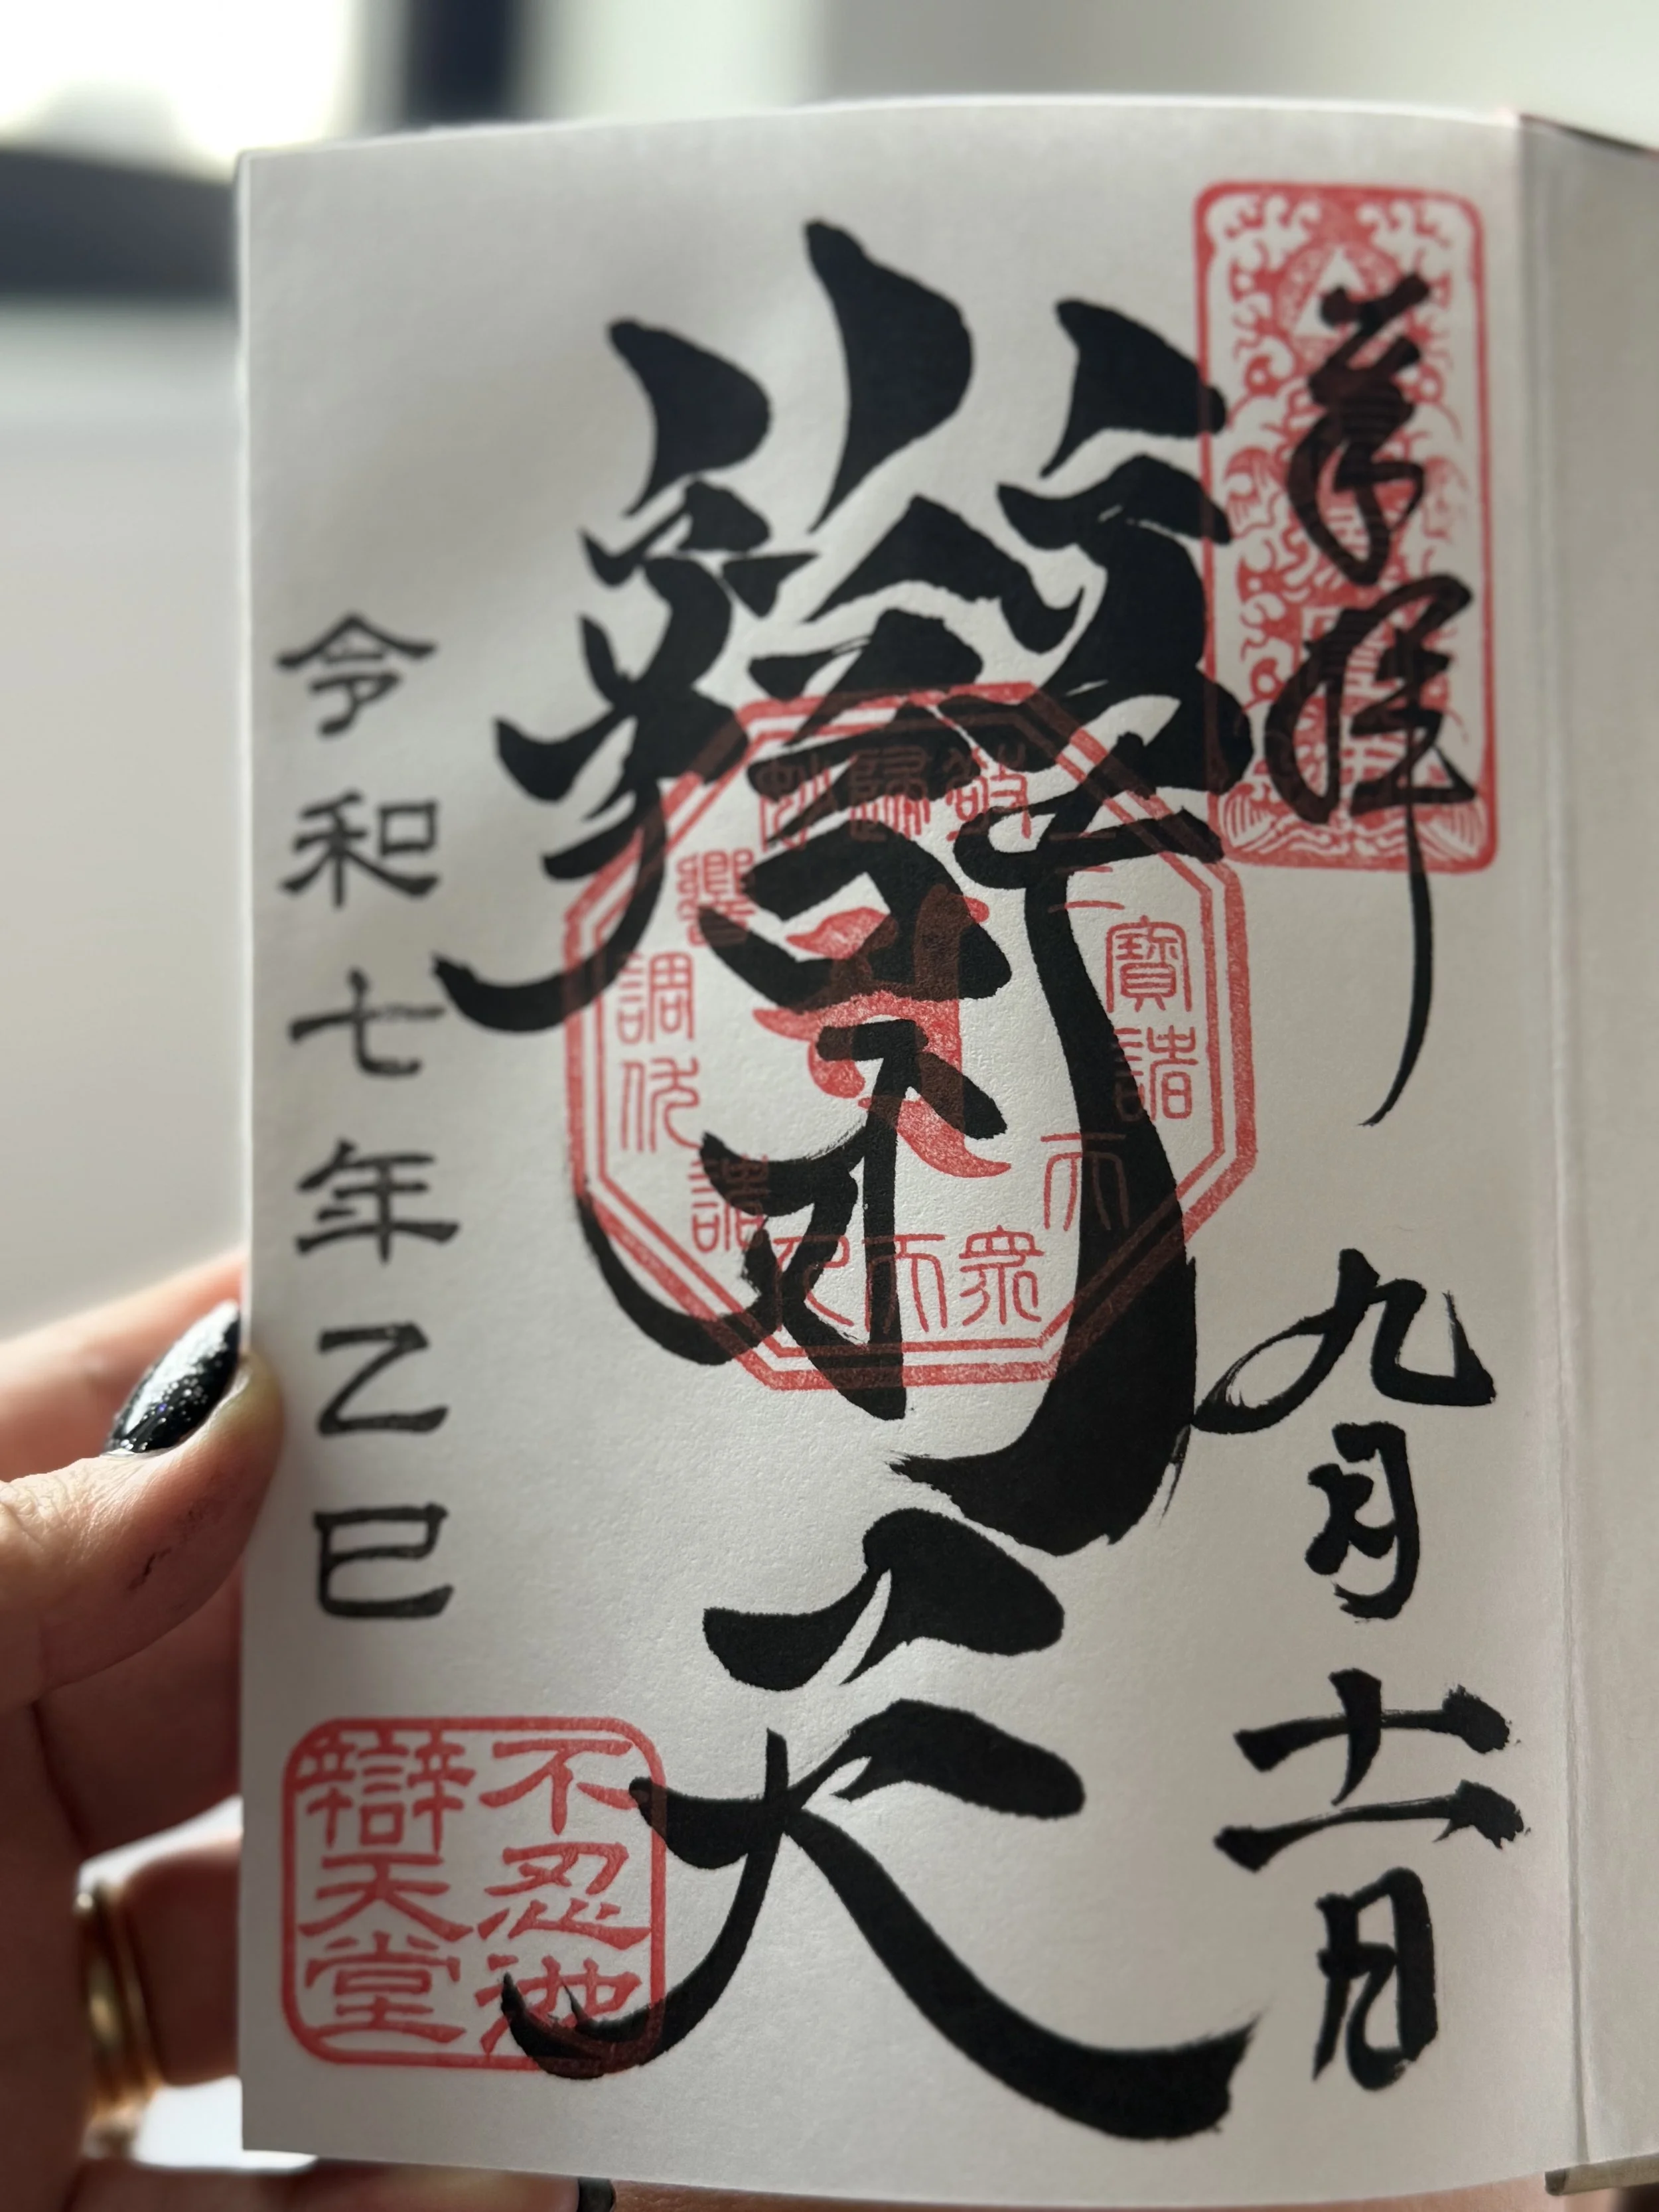 奉拝
九月十一日
辯才天
令和七年乙巳
不忍池
辯天堂